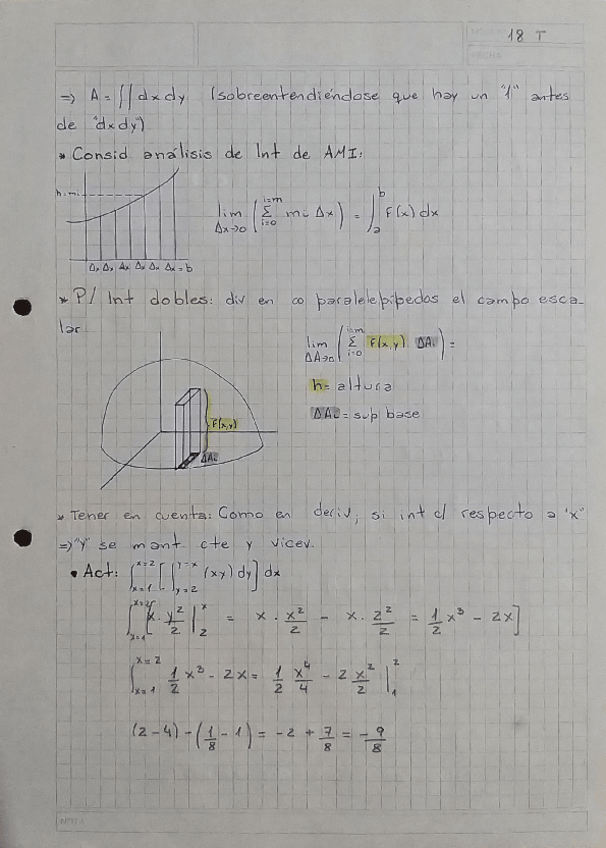 18 T
=> A = ∬ dxdy (sobreentendiéndose que hay un "1" antes
de "dxdy")
* Consid análisis de Int de AMI:
h=mi
lim Δx→0 (Σ i=0 i=m mi Δx) = ∫ a b F(x) dx
Δx Δx Δx Δx Δx Δx = b
* P/ Int dobles: div en ∞ paralelepípedos el campo esca-
lar
lim ΔA→0 (Σ i=0 i=m F(x,y) ΔAi) =
h = altura
ΔAi = sup base
F(x,y)
ΔAi
* Tener en cuenta: Como en deriv, si int c/ respecto a "x"
=> "y" se mant cte y vicev.
• Act: ∫ x=1 x=2 [∫ y=2 y=x (xy) dy] dx
∫ x=1 x=2 [x · y²/2 | 2 x = x · x²/2 - x · 2²/2 = 1/2 x³ - 2x]
∫ x=1 x=2 1/2 x³ - 2x = 1/2 x⁴/4 - 2 x²/2 | 1 2
(2-4) - (1/8 - 1) = -2 + 7/8 = -9/8